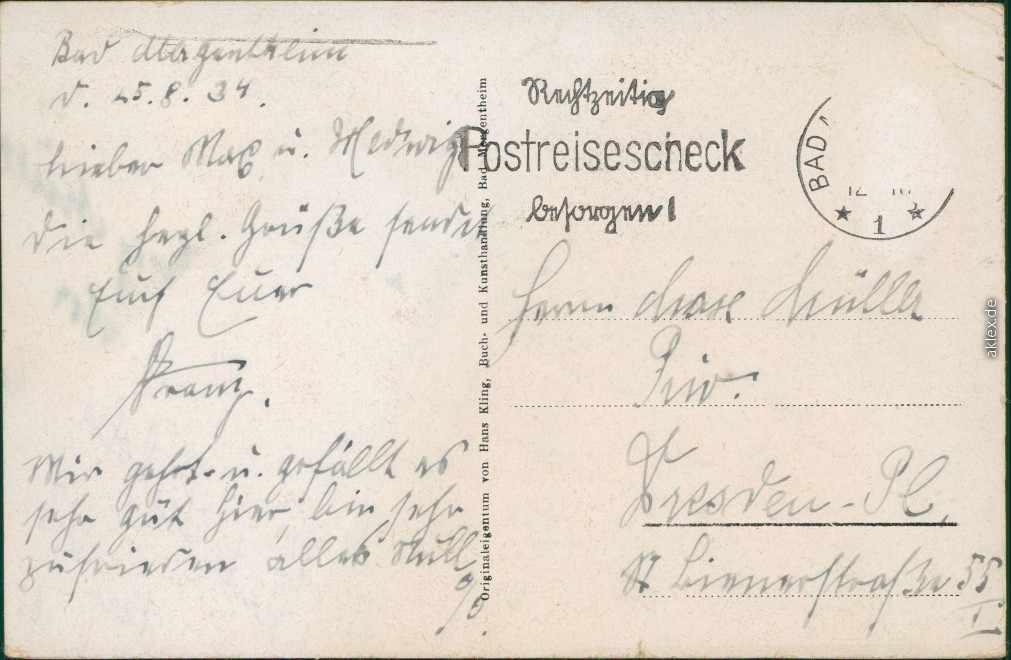 Bad Mergentheim
d. 25.8.34.
Lieber Max u. Hedwig
Die hezl. Grüße sendet
Euch Euer
Franz.
Mir geht u. gefällt es
sehr gut hier, bin sehr
zufrieden alles Null
Originaleigentum von Hans Kling, Buch- und Kunsthandlung, Bad Mergentheim
Rechtzeitig
Postreisescheck
besorgen!
BAD
12
1
Herrn Max Müller
Priv.
Dresden-Pl.
Bienertstraße 55
I
aklex.de